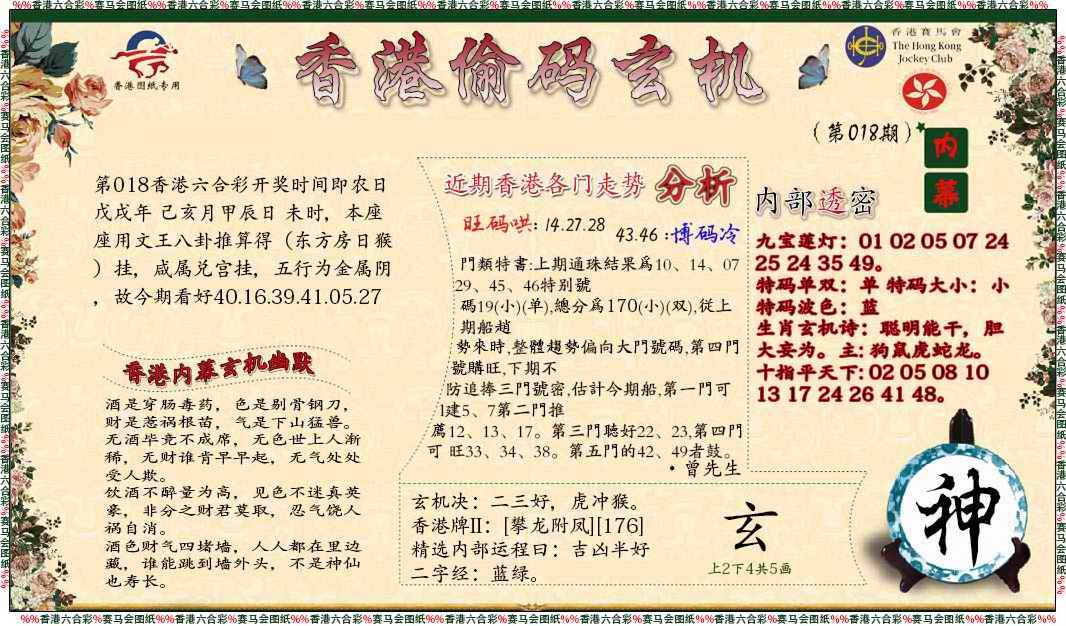 %%香港六合彩%赛马会图纸%%香港六合彩%赛马会图纸%%香港六合彩%赛马会图纸%%香港六合彩%赛马会图纸%%香港六合彩%赛马会图纸%%香港六合彩%赛马会图纸%%香港六合彩%%
香港图纸专用
香港偷码玄机
香港賽馬會
The Hong Kong
Jockey Club
（第018期）
内
幕
第018香港六合彩开奖时间即农日
戊戌年 己亥月甲辰日 未时，本座
座用文王八卦推算得（东方房日猴
）挂，咸属兑宫挂，五行为金属阴
，故今期看好40.16.39.41.05.27
香港内幕玄机幽默
酒是穿肠毒药，色是剔骨钢刀，
财是惹祸根苗，气是下山猛兽。
无酒毕竟不成席，无色世上人渐
稀，无财谁肯早早起，无气处处
受人欺。
饮酒不醉量为高，见色不迷真英
豪，非分之财君莫取，忍气饶人
祸自消。
酒色财气四堵墙，人人都在里边
藏，谁能跳到墙外头，不是神仙
也寿长。
近期香港各门走势 分析
旺码哄：14.27.28
43.46：博码冷
門類特書:上期通珠結果爲10、14、07
29、45、46特别號
碼19(小)(单),總分爲170(小)(双),從上
期船趙
勢來時,整體趨勢偏向大門號碼,第四門
號購旺,下期不
防追捧三門號密,估計今期船,第一門可
1建5、7第二門推
薦12、13、17。第三門聴好22、23,第四門
可 旺33、34、38。第五門的42、49者鼓。
·曾先生
内部透密
九宝莲灯：01 02 05 07 24
25 24 35 49。
特码单双：单 特码大小：小
特码波色：蓝
生肖玄机诗：聪明能干，胆
大妄为。主：狗鼠虎蛇龙。
十指平天下: 02 05 08 10
13 17 24 26 41 48。
玄机决：二三好，虎冲猴。
香港牌II：[攀龙附凤][176]
精选内部运程日：吉凶半好
二字经：蓝绿。
玄
上2下4共5画
神
%%香港六合彩%赛马会图纸%%香港六合彩%赛马会图纸%%香港六合彩%赛马会图纸%%香港六合彩%赛马会图纸%%香港六合彩%赛马会图纸%%香港六合彩%赛马会图纸%%香港六合彩%%